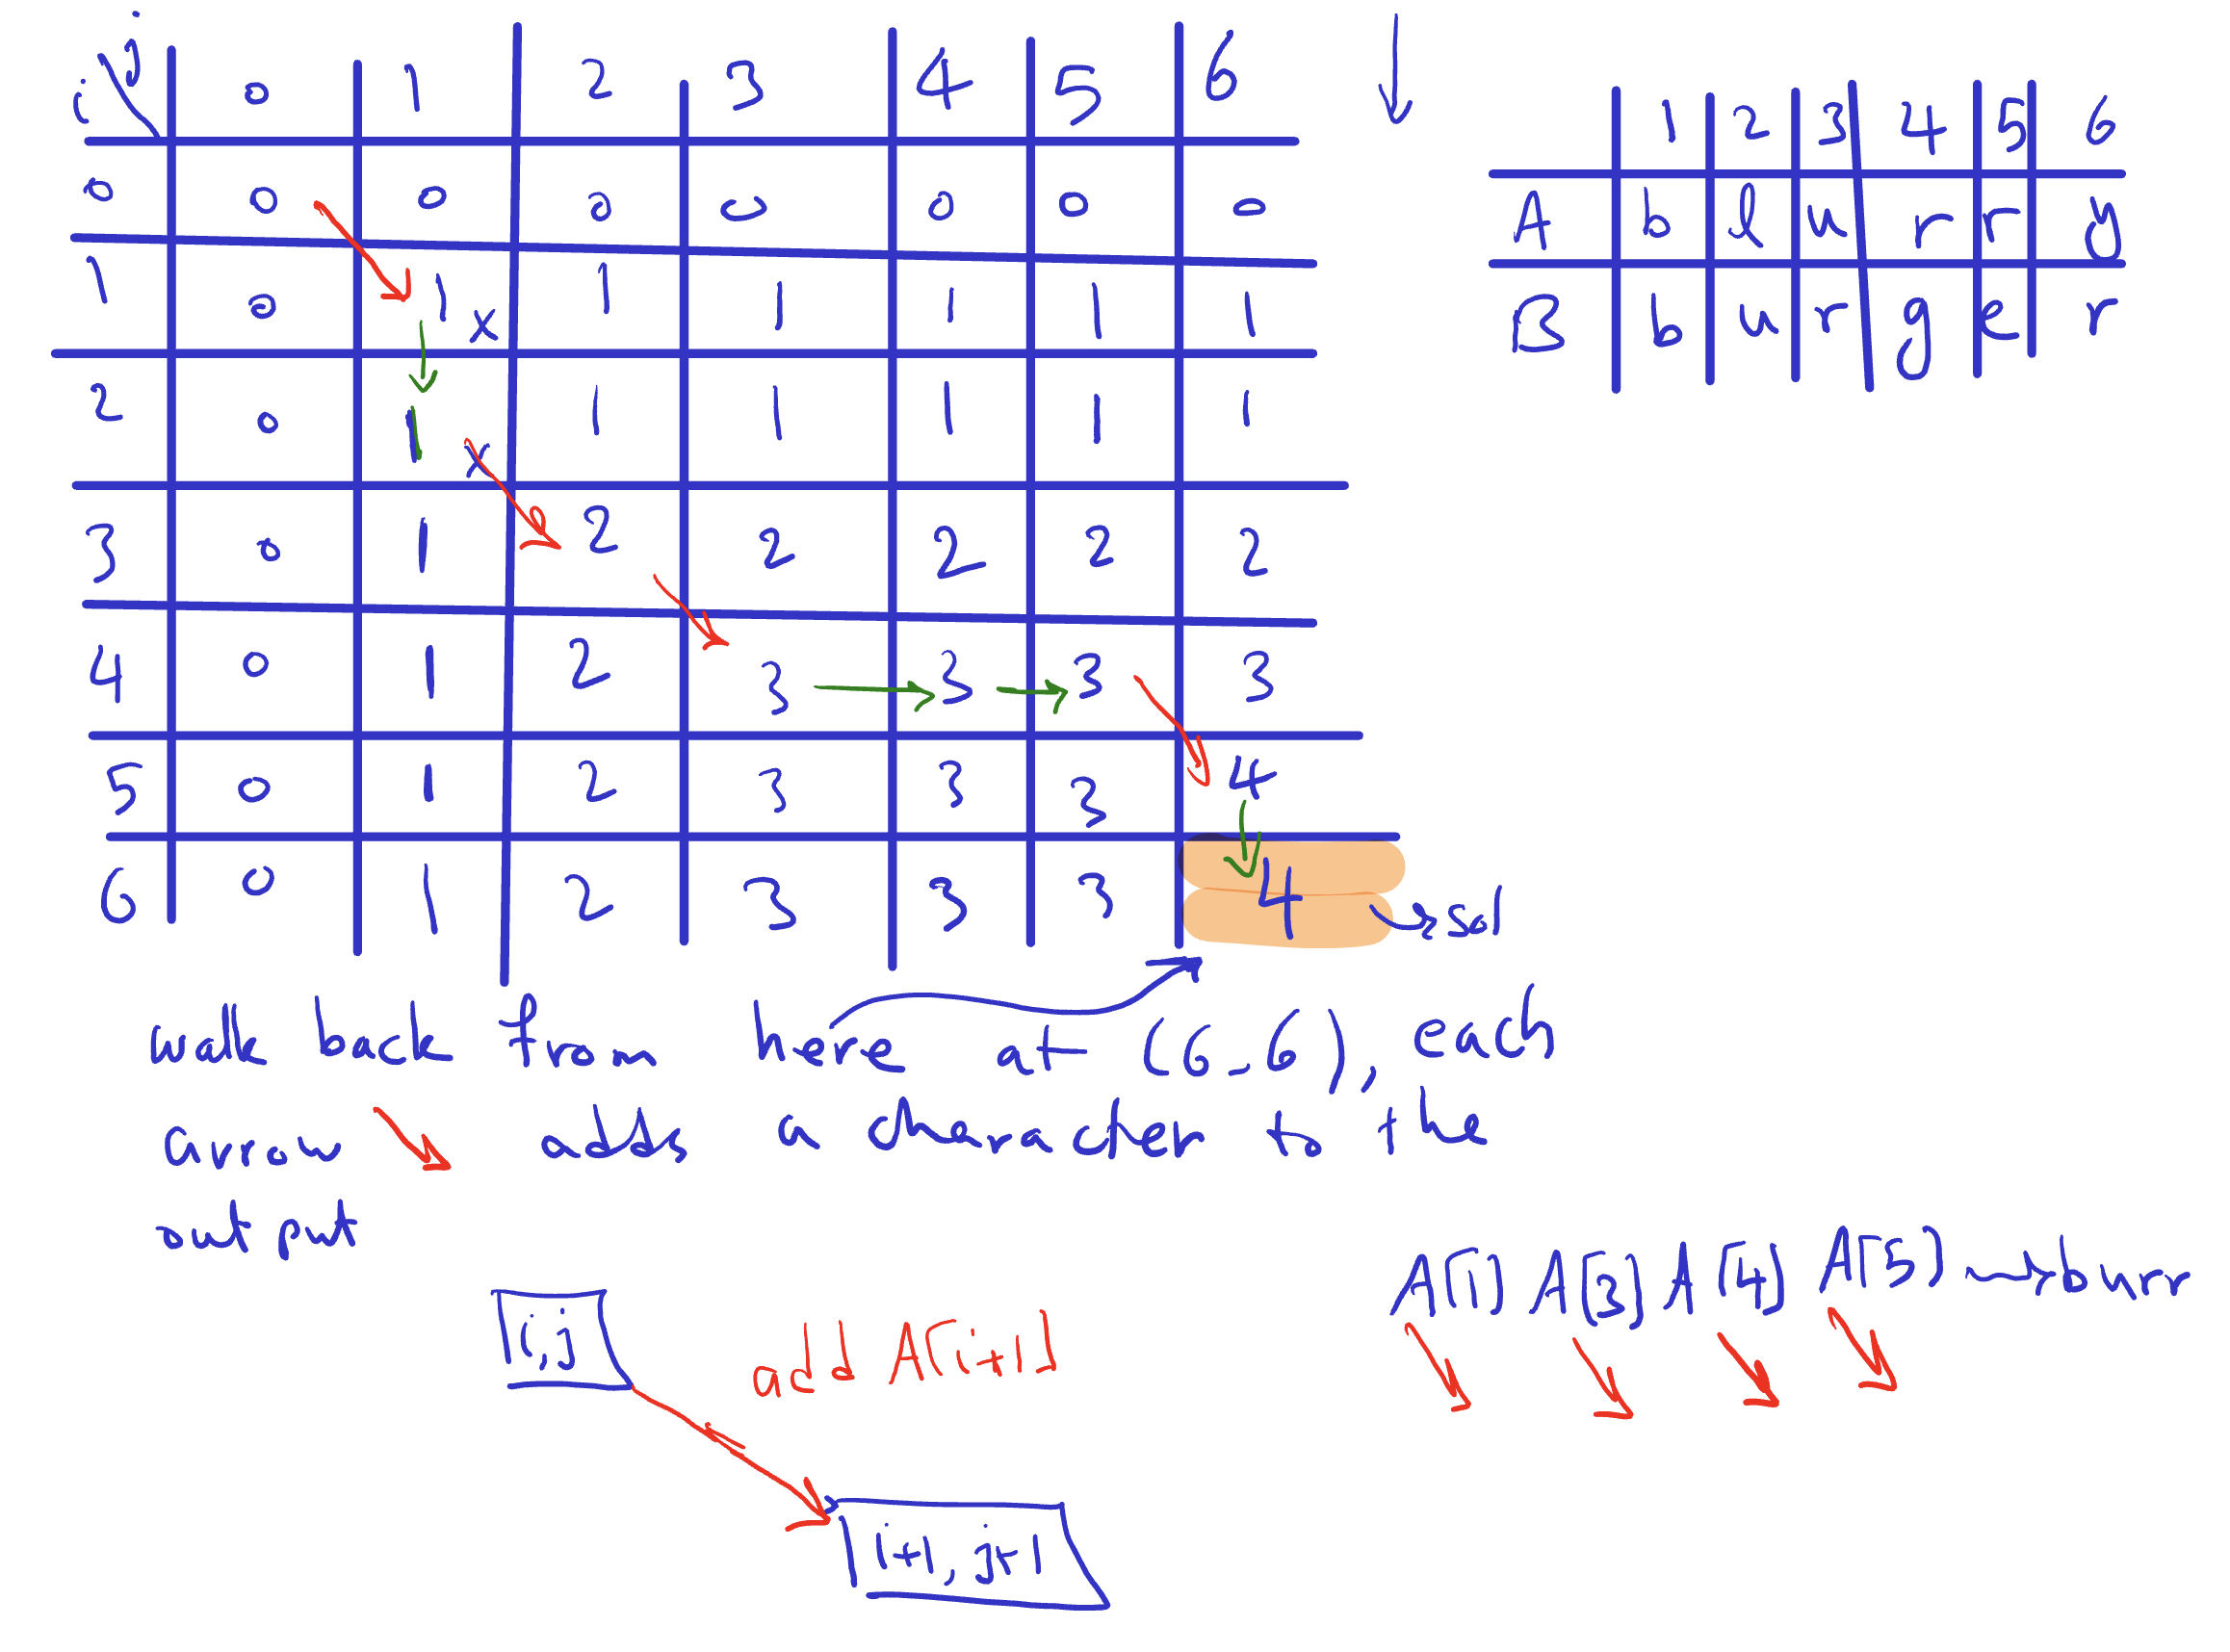 i j 0 1 2 3 4 5 6
0 0 0 0 0 0 0 0
1 0 1 x 1 1 1 1 1
2 0 1 x 1 1 1 1 1
3 0 1 2 2 2 2 2
4 0 1 2 3 3 3 3
5 0 1 2 3 3 3 4
6 0 1 2 3 3 3 4 sol
1 2 3 4 5 6
A b l u r r y
B b u r g e r
walk back from here at (6,6), each
arrow adds a character to the
output
A[1] A[3] A[4] A[5] → burr
i,j
add A[i+1]
i+1, j+1